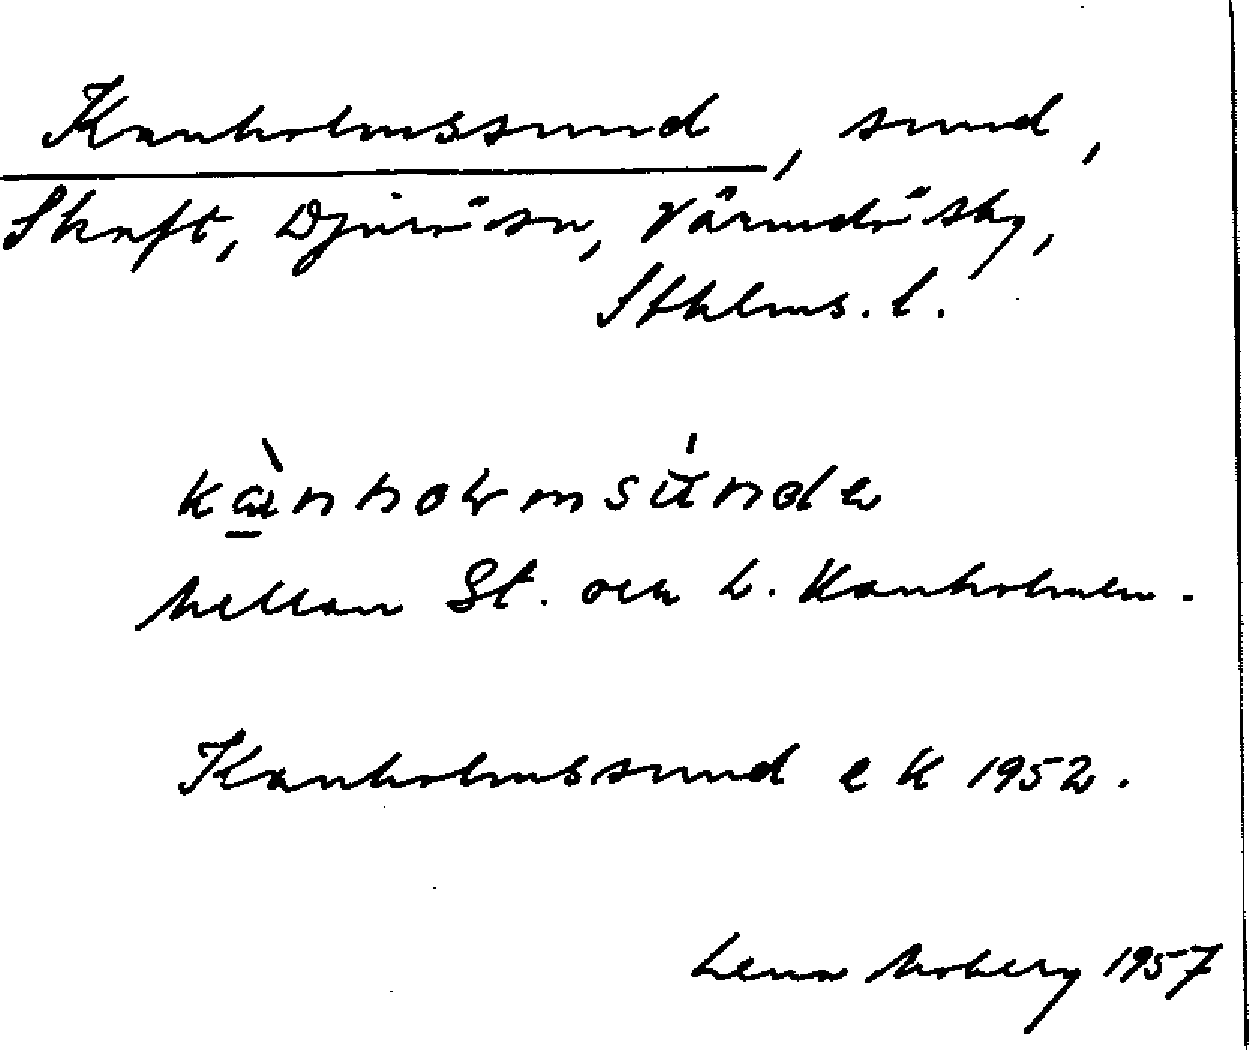 Kanholmssund, sund,
Skaft, Djurö sn, Värmdö sky,
Sthlms. l.
mellan St. och L. Kanholmen.
Kanholmssund e K 1952.
Lena Moberg 1957